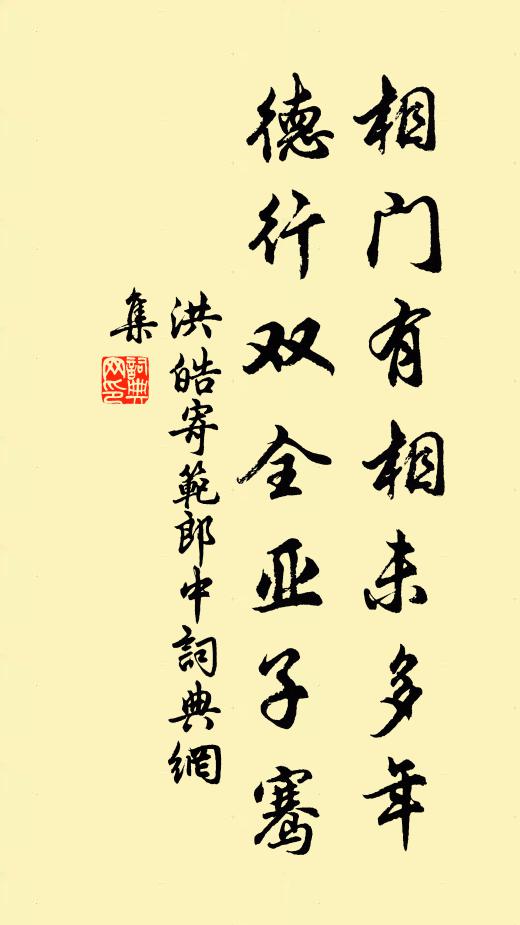 相门有相未多年
德行双全亚子骞
洪皓寄範郎中詞典網
集
詞典网印